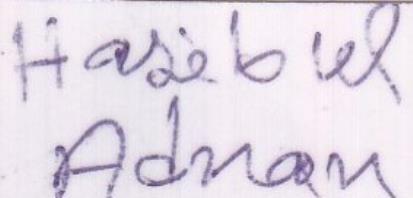 Hasebul
Adnan